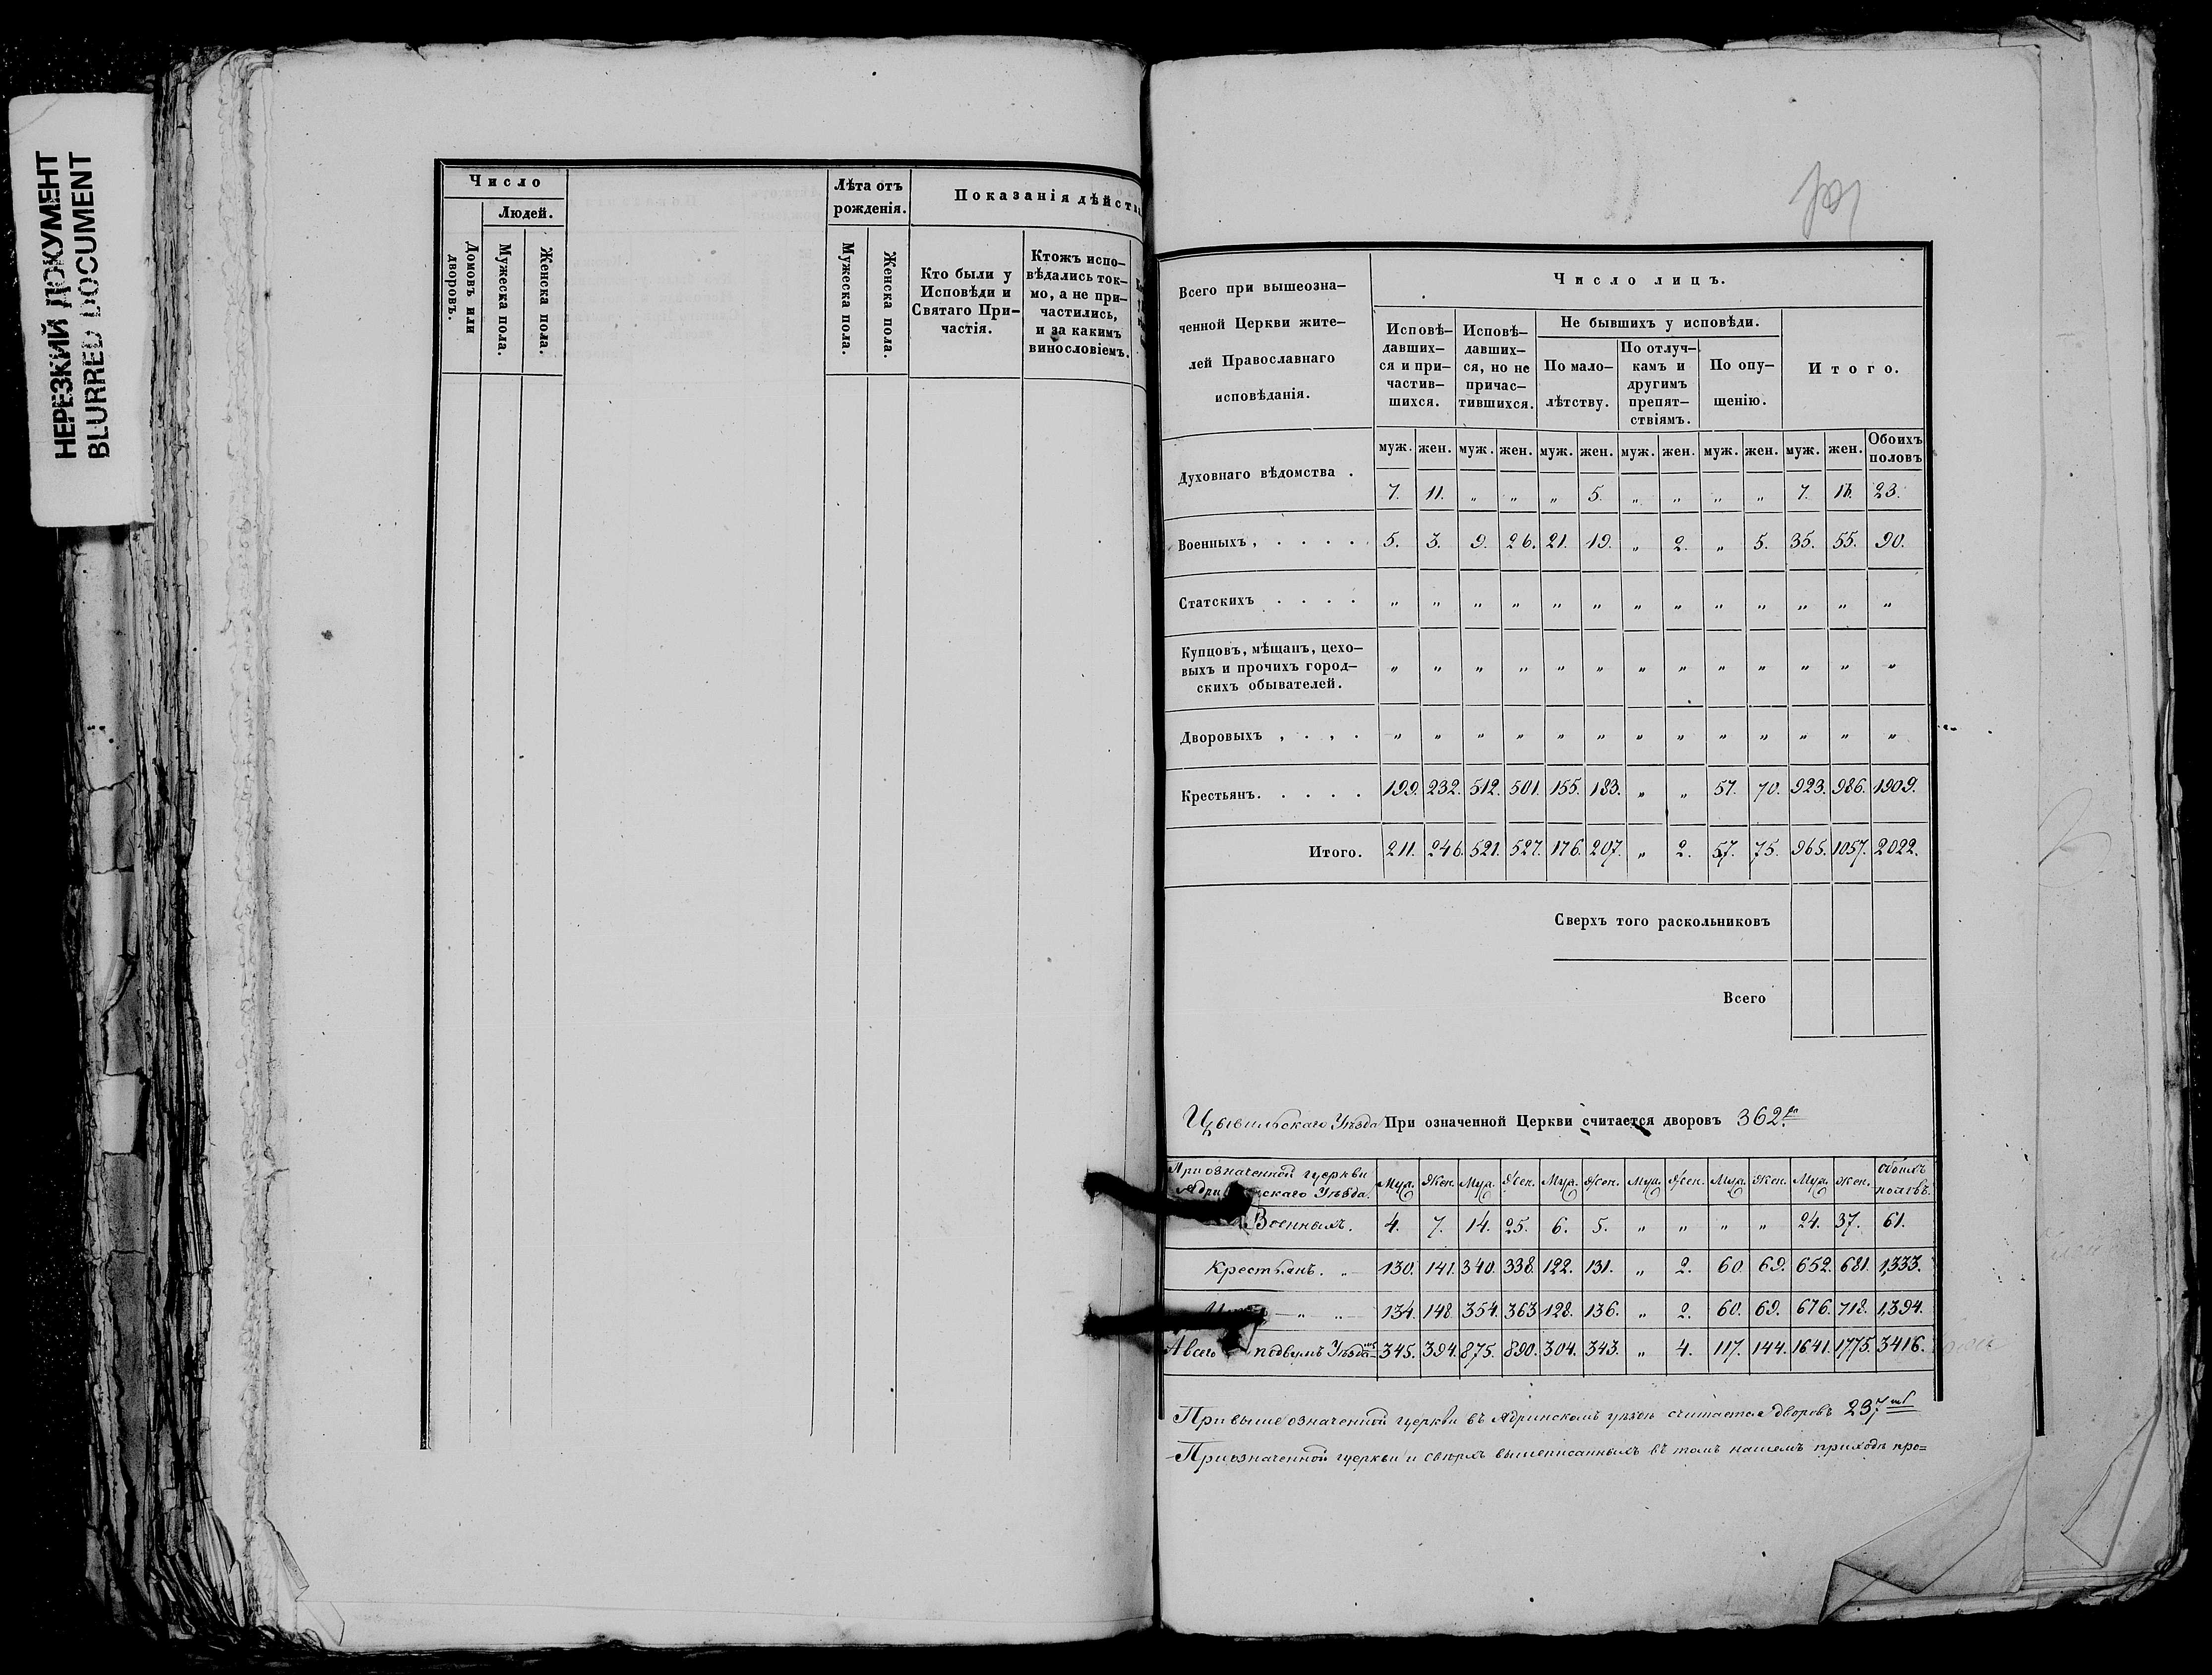 НЕРЕЗКИЙ ДОКУМЕНТ
BLURRED DOCUMENT
Число
Людей.
Домовъ или дворовъ.
Мужеска пола.
Женска пола.
Лѣта отъ рожденія.
Мужеска пола.
Женска пола.
Показанія дѣйств
Кто были у
Исповѣди и
Святаго При-
частія.
Ктожъ испо-
вѣдались ток-
мо, а не при-
частились,
и за какимъ
винословіемъ.
Всего при вышеозна-
ченной Церкви жите-
лей Православнаго
исповѣданія.
Число лицъ.
Исповѣ-
давших-
ся и при-
частив-
шихся.
Исповѣ-
давших-
ся, но не
причас-
тившихся.
Не бывшихъ у исповѣди.
По мало-
лѣтству.
По отлуч-
камъ и
другимъ
препят-
ствіямъ.
По опу-
щенію.
Итого.
муж. жен. муж. жен. муж. жен. муж. жен. муж. жен. муж. жен. Обоихъ половъ
Духовнаго вѣдомства . 7. 11. „ „ „ 5. „ „ „ „ 7. 16. 23.
Военныхъ , . . . . 5. 3. 9. 26. 21. 19. „ 2. „ 5. 35. 55. 90.
Статскихъ . . . . „ „ „ „ „ „ „ „ „ „ „ „ „
Купцовъ, мѣщанъ, цехо-
выхъ и прочихъ город-
скихъ обывателей. „ „ „ „ „ „ „ „ „ „ „ „ „
Дворовыхъ , . , . „ „ „ „ „ „ „ „ „ „ „ „ „
Крестьянъ. . . . . 199. 232. 512. 501. 155. 183. „ „ 57. 70. 923. 986. 1909.
Итого. 211. 246. 521. 527. 176. 207. „ 2. 57. 75. 965. 1057. 2022.
Сверхъ того раскольниковъ
Всего
Цывильскаго Уѣзда При означенной Церкви считается дворовъ 362.
При означенной церкви
скаго Уѣзда. Муж. Жен. Муж. Жен. Муж. Жен. Муж. Жен. Муж. Жен. Муж. Жен. Обоихъ половъ.
Военныхъ. 4. 7. 14. 25. 6. 5. „ „ „ „ 24. 37. 61.
Крестьянъ. „ 130. 141. 340. 338. 122. 131. „ 2. 60. 69. 652. 681. 1333.
„ „ 134. 148. 354. 363. 128. 136. „ 2. 60. 69. 676. 718. 1394.
Авсего подвумъ Уѣздамъ 345. 394. 875. 890. 304. 343. „ 4. 117. 144. 1641. 1775. 3416.
При выше означенной церкви въ Ядринскомъ уѣздѣ считается дворовъ 237
При означенной церкви и сверхъ вышеписанныхъ въ томъ нашемъ приходѣ про=